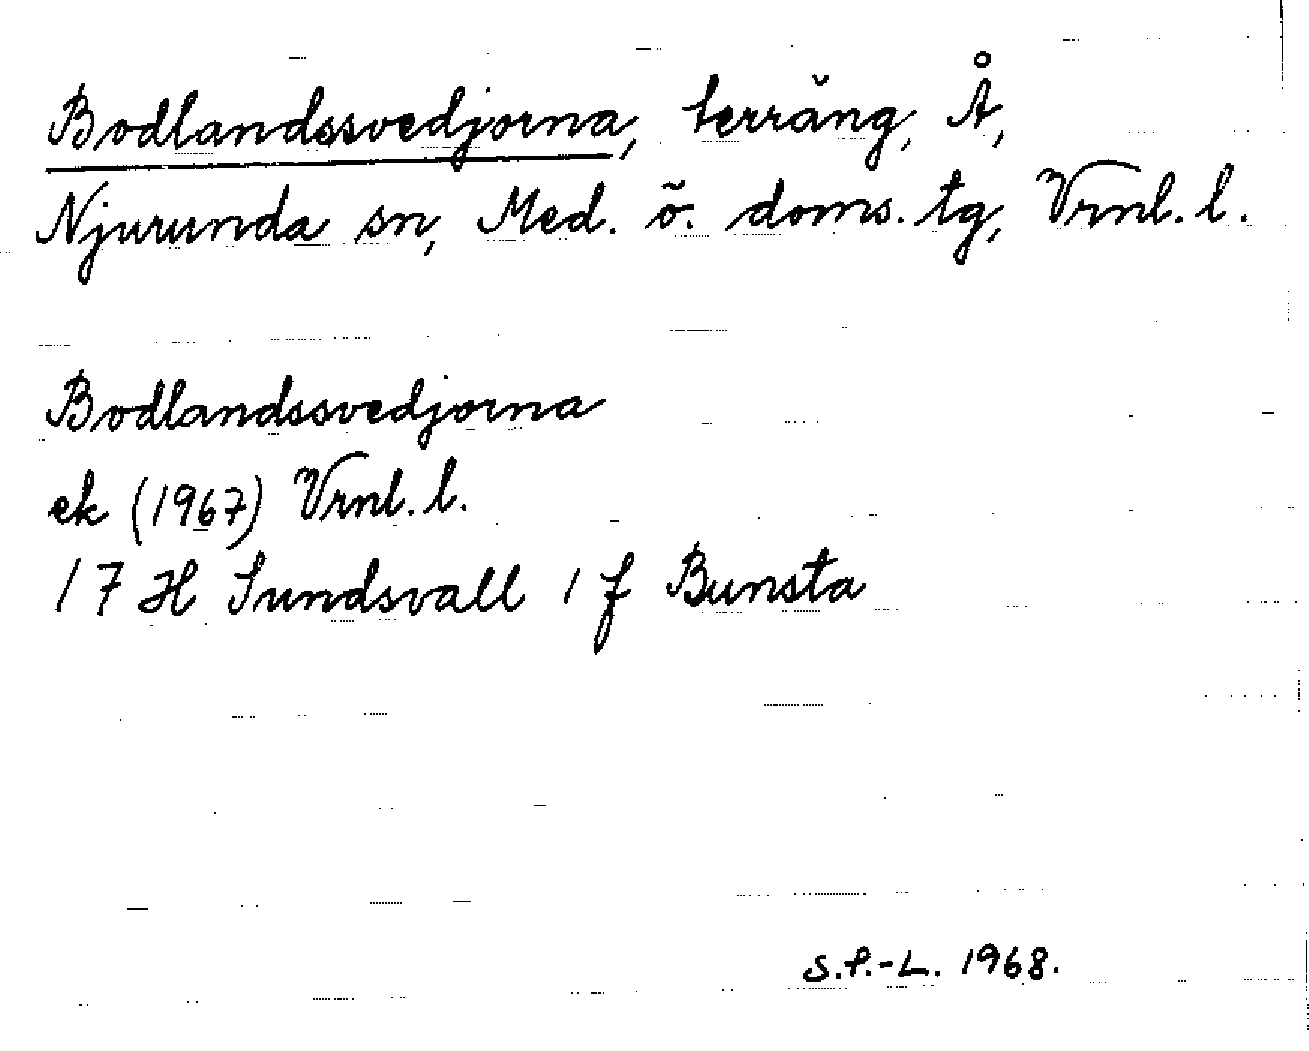 Bodlandssvedjorna, terräng, Å,
Njurunda sn, Med. ö. doms. tg, Vrnl. l.
Bodlandssvedjorna
ek (1967) Vrnl. l.
17 H Sundsvall 1 f Bunsta
S.P.-L. 1968.